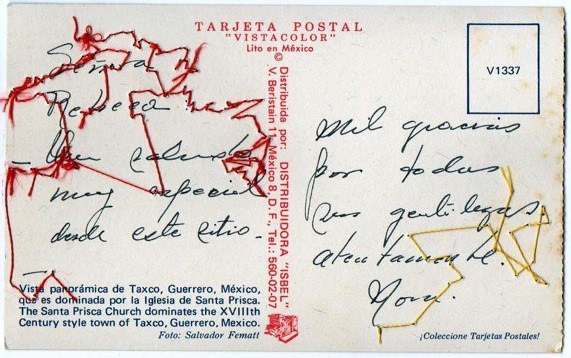 TARJETA POSTAL
"VISTACOLOR"
Lito en México
©
Distribuida por: DISTRIBUIDORA "ISBEL"
V. Beristain 11, México 8, D. F., Tel.: 560-02-07
V1337
Señora
Rebeca:
Un saludo
muy especial
desde este sitio.
Mil gracias
por todas
sus gentilezas,
atentamente.
Vista panorámica de Taxco, Guerrero, México,
que es dominada por la Iglesia de Santa Prisca.
The Santa Prisca Church dominates the XVIIIth
Century style town of Taxco, Guerrero, Mexico.
Foto: Salvador Fematt
ISBEL
¡Coleccione Tarjetas Postales!